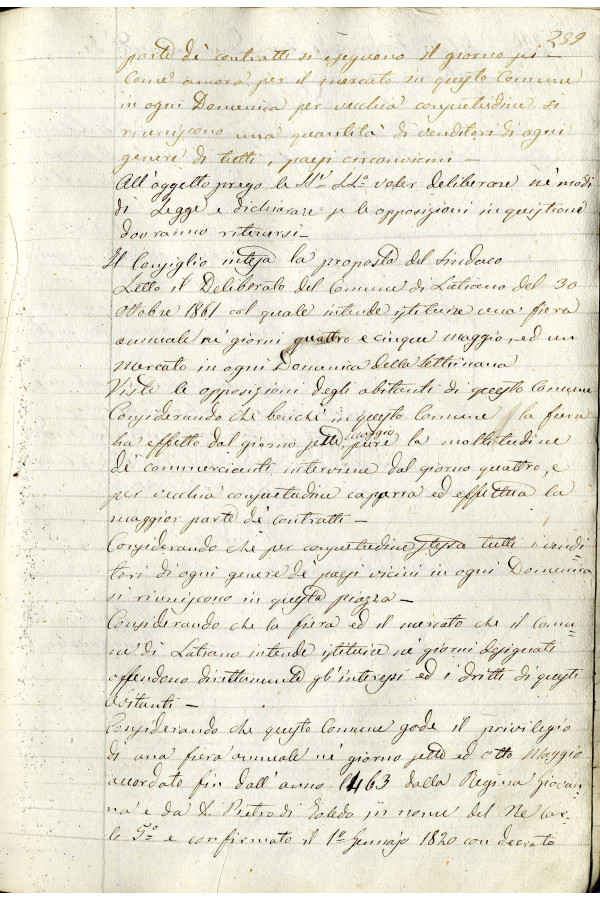 239
parte de' contratti si eseguono il giorno pri-
Come ancora per il mercato in questo Comune
in ogni Domenica per vecchia consuetudine si
riuniscono una quantità di venditori di ogni
genere di tutti, paesi circonvicini –
All'oggetto prego le SS.rie LL.o voler deliberare ne' modi
di Legge e dichiarare se le opposizioni in quistione
dovranno ritenersi –
Il Consiglio intesa la proposta del Sindaco
Letto il Deliberato del Comune di Latiano del 30
Ottobre 1861 col quale intende istituire una fiera
annuale ne' giorni quattro e cinque maggio, ed un
mercato in ogni Domenica della Settimana
Viste le opposizioni degli abitanti di questo Comune
Considerando che benchè in questo Comune la fiera
ha effetto dal giorno sette maggio pure la moltitudine
de' commercianti interviene dal giorno quattro, e
per vecchia consuetudine caparra ed effettua la
maggior parte de' contratti –
Considerando che per consuetudine stessa tutti i vendi
tori di ogni genere de' paesi vicini in ogni Domenica
si riuniscono in questa piazza –
Considerando che la fiera ed il mercato che il Comu-
ne di Latiano intende istituire ne' giorni designati
offendono direttamente gl'interessi ed i dritti di questi
abitanti –
Considerando che questo Comune gode il privilegio
di una fiera annuale ne' giorno sette ed otto Maggio
accordato fin dall'anno 1463 dalla Regina Giovan-
na e da D. Pietro di Toledo in nome del Re Car-
lo 5.o e confirmato il 1.o Gennajo 1820 con decreto